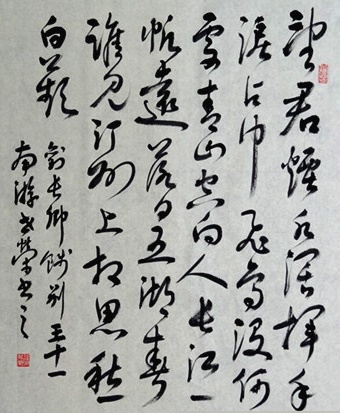 望君煙水阔挥手
淚沾巾飛鸟没何
处青山空向人长江一
帆遠落日五湖春
谁见汀洲上相思愁
白蘋
刘长卿餞别王十一
南游荣书之